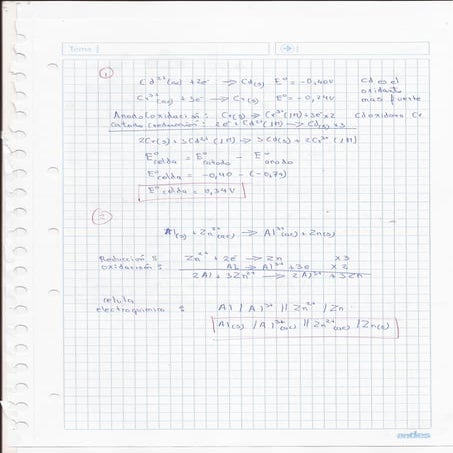 Tema
①
Cd²⁺(ac) + 2e⁻ → Cd(s) E° = -0,40V Cd es el
oxidante
Cr³⁺(ac) + 3e⁻ → Cr(s) E° = -0,74V mas fuerte
Anodo (oxidación): Cr(s) → Cr³⁺(1M) + 3e⁻ x2 Cd oxidara Cr
Catodo (reducción): 2e⁻ + Cd²⁺(1M) → Cd(s) x3
2Cr(s) + 3Cd²⁺(1M) → 3Cd(s) + 2Cr³⁺(1M)
E°celda = E°catodo - E°anodo
E°celda = -0,40 - (-0,74)
E°celda = 0,34V
②
Al(s) + Zn²⁺(ac) → Al³⁺(ac) + Zn(s)
Reducción: Zn²⁺ + 2e⁻ → Zn x3
oxidación: Al → Al³⁺ + 3e x2
2Al + 3Zn²⁺ → 2Al³⁺ + 3Zn
celula
electroquimica: Al / Al³⁺ // Zn²⁺ / Zn
Al(s) / Al³⁺(ac) // Zn²⁺(ac) / Zn(s)
andes